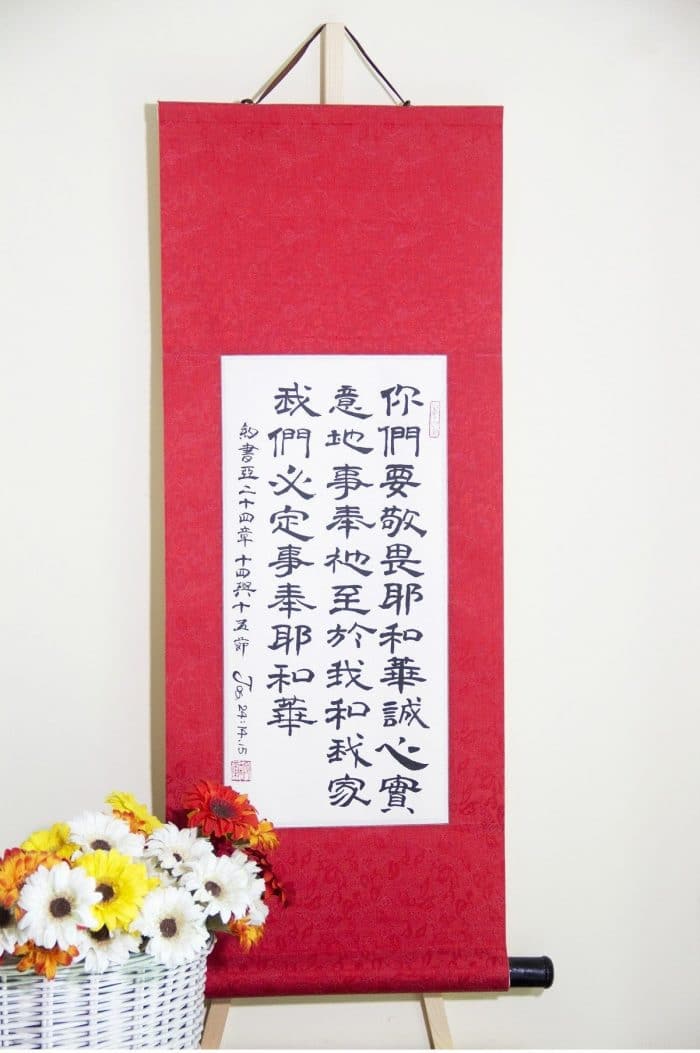 你們要敬畏耶和華誠心實
意地事奉祂至於我和我家
我們必定事奉耶和華
約書亞二十四章十四與十五節 Jos 24:14.15